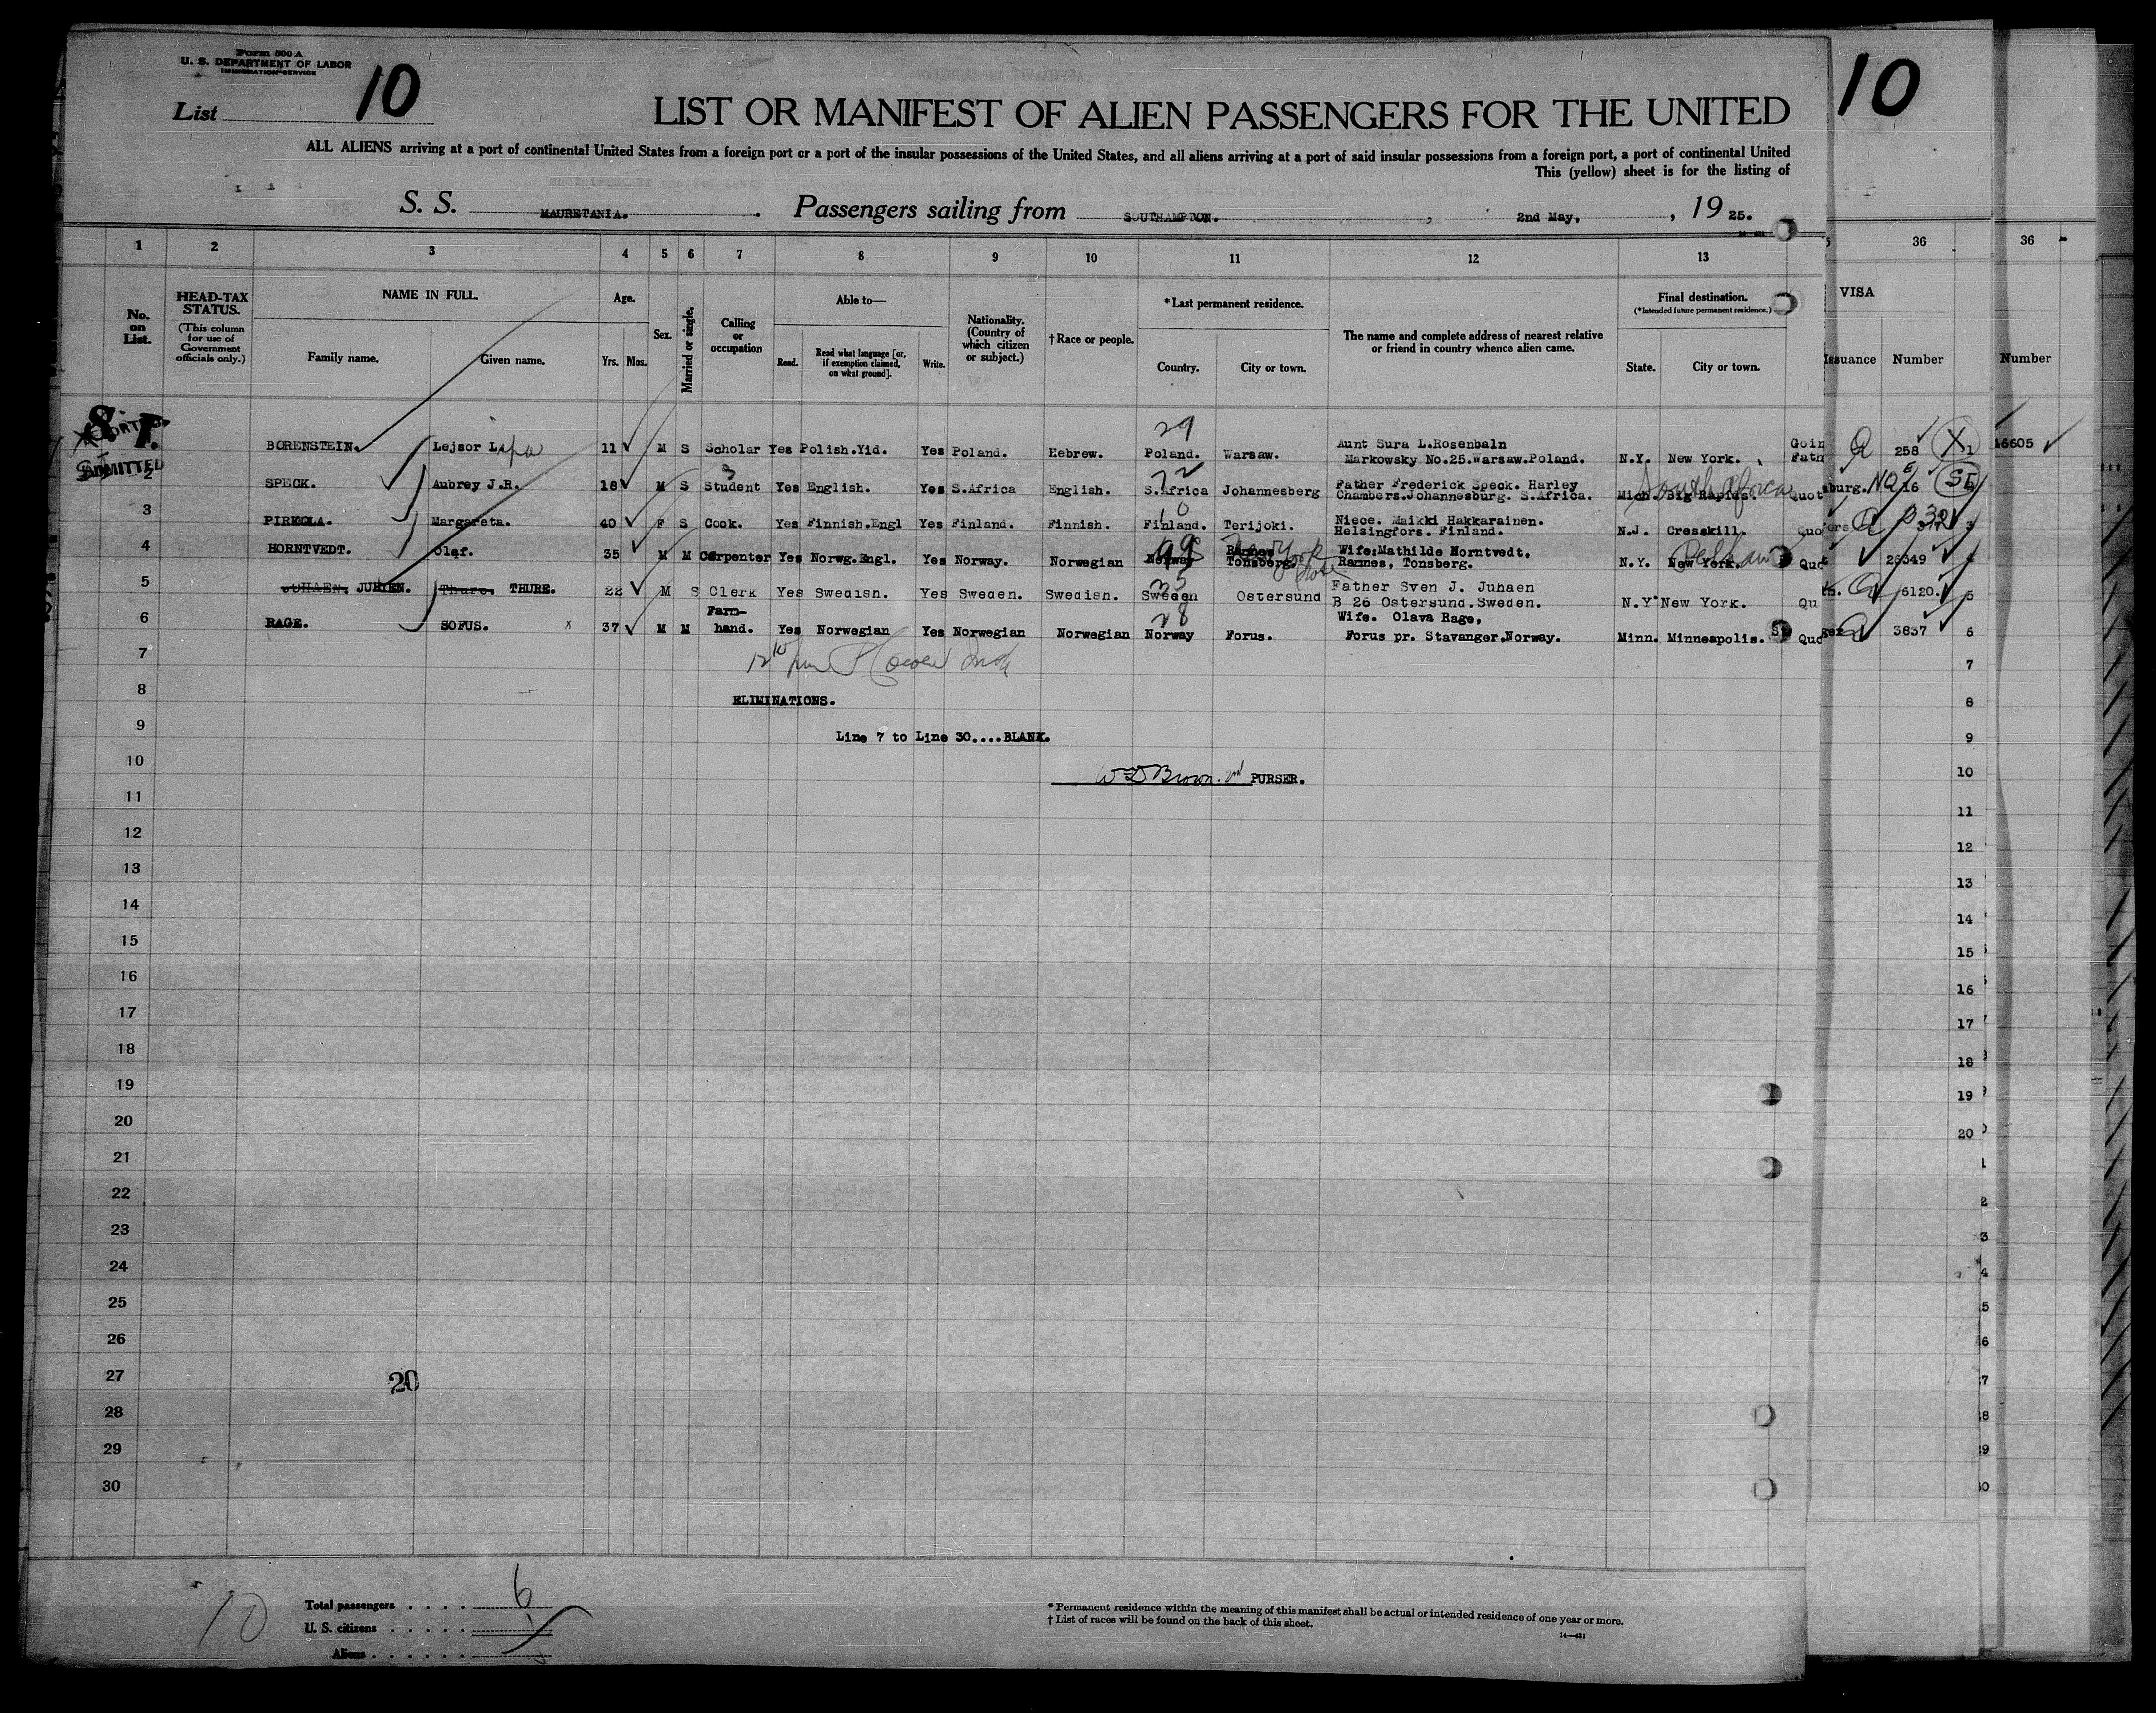 Form 500 A
U. S. DEPARTMENT OF LABOR
IMMIGRATION SERVICE
List 10
10
LIST OR MANIFEST OF ALIEN PASSENGERS FOR THE UNITED
ALL ALIENS arriving at a port of continental United States from a foreign port or a port of the insular possessions of the United States, and all aliens arriving at a port of said insular possessions from a foreign port, a port of continental United
This (yellow) sheet is for the listing of
S. S. MAURETANIA. Passengers sailing from SOUTHAMPTON. , 2nd May, , 19 25.
1 2 3 4 5 6 7 8 9 10 11 12 13 36 36
No. on List. HEAD-TAX STATUS. (This column for use of Government officials only.) NAME IN FULL. Age. Sex. Married or single. Calling or occupation Able to— Nationality. (Country of which citizen or subject.) † Race or people. *Last permanent residence. The name and complete address of nearest relative or friend in country whence alien came. Final destination. (*Intended future permanent residence.) VISA
Family name. Given name. Yrs. Mos. Read. Read what language [or, if exemption claimed, on what ground]. Write. Country. City or town. State. City or town. Issuance Number Number
S. I.
ADMITTED
29
BORENSTEIN. Lejsor Lipa 11 M S Scholar Yes Polish.Yid. Yes Poland. Hebrew. Poland. Warsaw. Aunt Sura L.Rosenbaln Markowsky No.25.Warsaw.Poland. N.Y. New York. Goin Fath 258 X 1 16605
2 SPECK. Aubrey J.R. 18 M S Student Yes English. Yes S.Africa English. S.Africa Johannesberg Father Frederick Speck. Harley Chambers.Johannesburg. S.Africa. Mich. Big Rapids. South Africa Quot burg. NQ 16 SI
3 PIRKOLA. Margareta. 40 F S Cook. Yes Finnish.Engl Yes Finland. Finnish. Finland. Terijoki. Niece. Maikki Hakkarainen. Helsingfors. Finland. N.J. Cresskill. Quo fors 3
4 HORNTVEDT. Olaf. 35 M M Carpenter Yes Norwg.Engl. Yes Norway. Norwegian Norway 99 Ramnes Tonsberg. New York State Wife:Mathilde Horntvedt, Ramnes, Tonsberg. N.Y. New York. Quo 26349 4
5 JUHAEN. JUHLEN. Thure. THURE. 22 M S Clerk Yes Swedish. Yes Sweden. Swedish. Sweden Ostersund Father Sven J. Juhaen B 26 Ostersund.Sweden. N.Y. New York. Qu 6120. 5
6 RAGE. SOFUS. 37 M M Farm-hand. Yes Norwegian Yes Norwegian Norwegian 28 Norway Forus. Wife. Olava Rage, Forus pr. Stavanger,Norway. Minn. Minneapolis. Quo ger 3837 6
7 7
8 ELIMINATIONS. 8
9 Line 7 to Line 30....BLANK. 9
10 W D Brown. PURSER. 10
11 11
12 12
13 13
14 14
15 15
16 16
17 17
18 18
19 19
20 20
21
22
23
24
25
26
27 20
28
29
30
10
Total passengers . . . . 6
U. S. citizens . . . . .
Aliens . . . . . .
* Permanent residence within the meaning of this manifest shall be actual or intended residence of one year or more.
† List of races will be found on the back of this sheet.
14—421